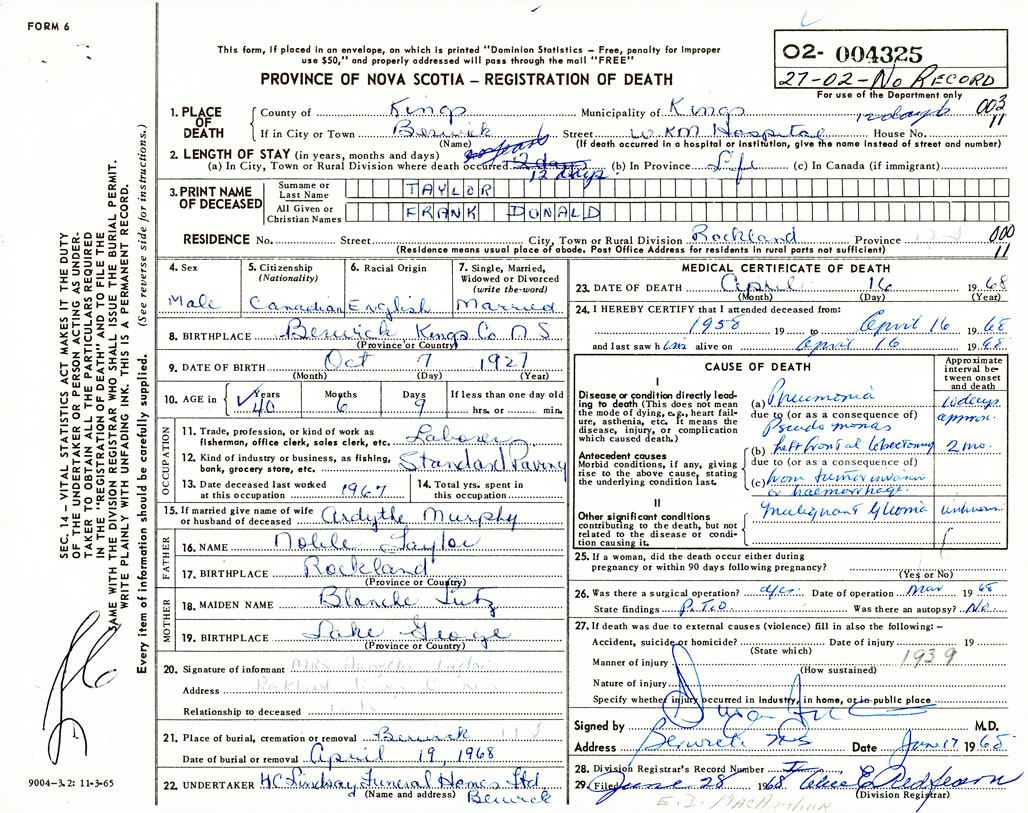 FORM 6
This form, if placed in an envelope, on which is printed "Dominion Statistics – Free, penalty for improper
use $50," and properly addressed will pass through the mail "FREE"
PROVINCE OF NOVA SCOTIA – REGISTRATION OF DEATH
02- 004325
27-02-No RECORD
For use of the Department only
003
11
1. PLACE OF DEATH
County of Kings Municipality of Kings 12 days
If in City or Town Berwick Street W.K.M Hospital House No.
(Name) (If death occurred in a hospital or institution, give the name instead of street and number)
2. LENGTH OF STAY (in years, months and days)
(a) In City, Town or Rural Division where death occurred 12 days (b) In Province Life (c) In Canada (if immigrant)
3. PRINT NAME OF DECEASED
Surname or Last Name TAYLOR
All Given or Christian Names FRANK DONALD
RESIDENCE No. Street City, Town or Rural Division Rockland Province 000
(Residence means usual place of abode. Post Office Address for residents in rural parts not sufficient) 11
4. Sex
Male
5. Citizenship (Nationality)
Canadian
6. Racial Origin
English
7. Single, Married, Widowed or Divorced (write the word)
Married
8. BIRTHPLACE Berwick Kings Co N S
(Province or Country)
9. DATE OF BIRTH Oct 7 1927
(Month) (Day) (Year)
10. AGE in Years Months Days If less than one day old
40 6 9 hrs. or min.
OCCUPATION
11. Trade, profession, or kind of work as fisherman, office clerk, sales clerk, etc. Laborer
12. Kind of industry or business, as fishing, bank, grocery store, etc. Standard Paving
13. Date deceased last worked at this occupation 1967
14. Total yrs. spent in this occupation
15. If married give name of wife or husband of deceased Ardythe Murphy
FATHER
16. NAME Noble Taylor
17. BIRTHPLACE Rockland
(Province or Country)
MOTHER
18. MAIDEN NAME Blanche Lutz
19. BIRTHPLACE Lake George
(Province or Country)
20. Signature of informant Mrs Taylor
Address Rockland
Relationship to deceased
21. Place of burial, cremation or removal Berwick N S
Date of burial or removal April 19, 1968
22. UNDERTAKER HC Lindsay Funeral Homes Ltd
(Name and address) Berwick
MEDICAL CERTIFICATE OF DEATH
23. DATE OF DEATH April 16 1968
(Month) (Day) (Year)
24. I HEREBY CERTIFY that I attended deceased from:
1958 19 to April 16 1968
and last saw him alive on April 16 1968
CAUSE OF DEATH
Approximate interval between onset and death
I
Disease or condition directly leading to death (This does not mean the mode of dying, e.g., heart failure, asthenia, etc. It means the disease, injury, or complication which caused death.)
(a) Pneumonia 10 days
due to (or as a consequence of) approx.
Pseudomonas
Antecedent causes
Morbid conditions, if any, giving rise to the above cause, stating the underlying condition last.
(b) Left frontal lobectomy 2 mo.
due to (or as a consequence of)
(c) from tumor invasion
or haemorrhage.
II
Other significant conditions contributing to the death, but not related to the disease or condition causing it.
Malignant Glioma unknown
25. If a woman, did the death occur either during pregnancy or within 90 days following pregnancy?
(Yes or No)
26. Was there a surgical operation? yes Date of operation Mar 1968
State findings P.T.O. Was there an autopsy? No.
27. If death was due to external causes (violence) fill in also the following: –
Accident, suicide or homicide? Date of injury 19
(State which)
Manner of injury 1939
(How sustained)
Nature of injury
Specify whether injury occurred in industry, in home, or in public place
Signed by M.D.
Address Berwick NS Date June 17 1968
28. Division Registrar's Record Number
29. Filed June 28 1968 Alice E Redfearn
(Division Registrar)
E. D. MacArthur
SEC. 14 – VITAL STATISTICS ACT MAKES IT THE DUTY
OF THE UNDERTAKER OR PERSON ACTING AS UNDER-
TAKER TO OBTAIN ALL THE PARTICULARS REQUIRED
IN THE "REGISTRATION OF DEATH" AND TO FILE THE
SAME WITH THE DIVISION REGISTRAR WHO SHALL ISSUE THE BURIAL PERMIT.
WRITE PLAINLY WITH UNFADING INK. THIS IS A PERMANENT RECORD.
Every item of information should be carefully supplied. (See reverse side for instructions.)
9004-3.2: 11-3-65